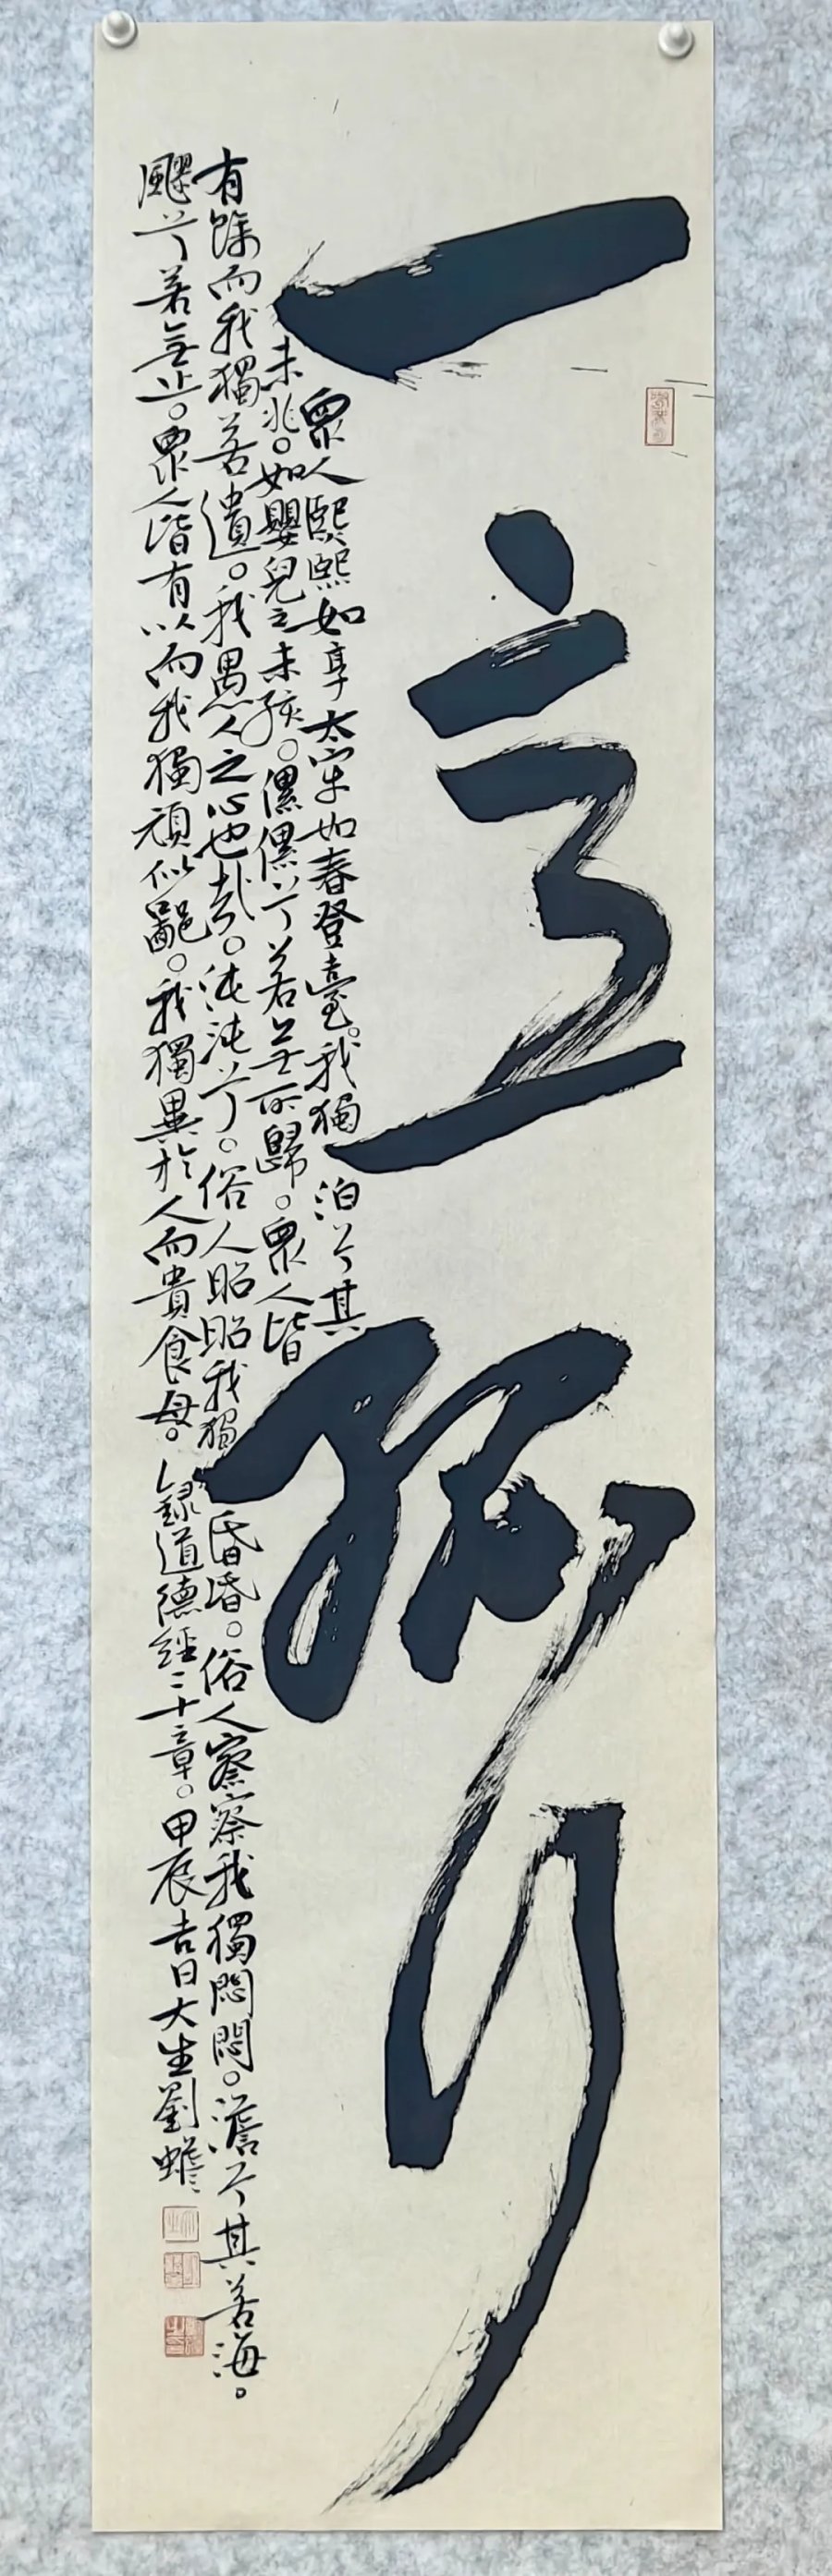 一意孤行
眾人熙熙如享太牢如春登臺。我獨泊兮其
未兆。如嬰兒之未孩。儽儽兮若無所歸。眾人皆
有餘而我獨若遺。我愚人之心也哉。沌沌兮。俗人昭昭我獨昏昏。俗人察察我獨悶悶。澹兮其若海。
飂兮若無止。眾人皆有以而我獨頑似鄙。我獨異於人而貴食母。錄道德經二十章。甲辰吉日大生劉